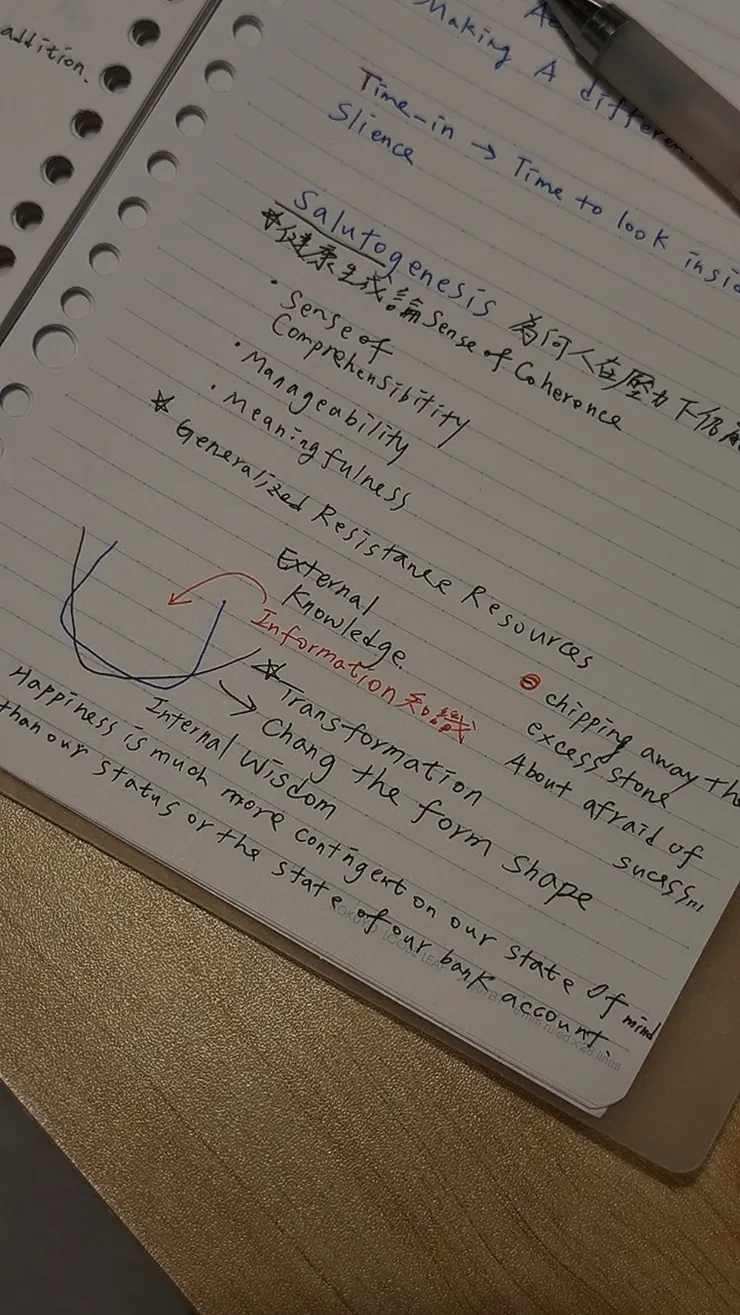 addition.
Making A differen
Time-in → Time to look insid
Slience
Salutogenesis 為何人在壓力下仍
*健康生成論 Sense of Coherence
• Sense of
Comprehensibitity
• Manageability
• Meaningfulness
* Generalized Resistance Resources
External
Knowledge.
Information 知識
⊖ chipping away the
excess stone
* Transformation
→ Chang the form shape
About afraid of
sucess...
Internal Wisdom
Happiness is much more contingent on our state of mind
than our status or the state of our bank account.
KOKUYO LOOSE LEAF
6mm ruled × 28 lines